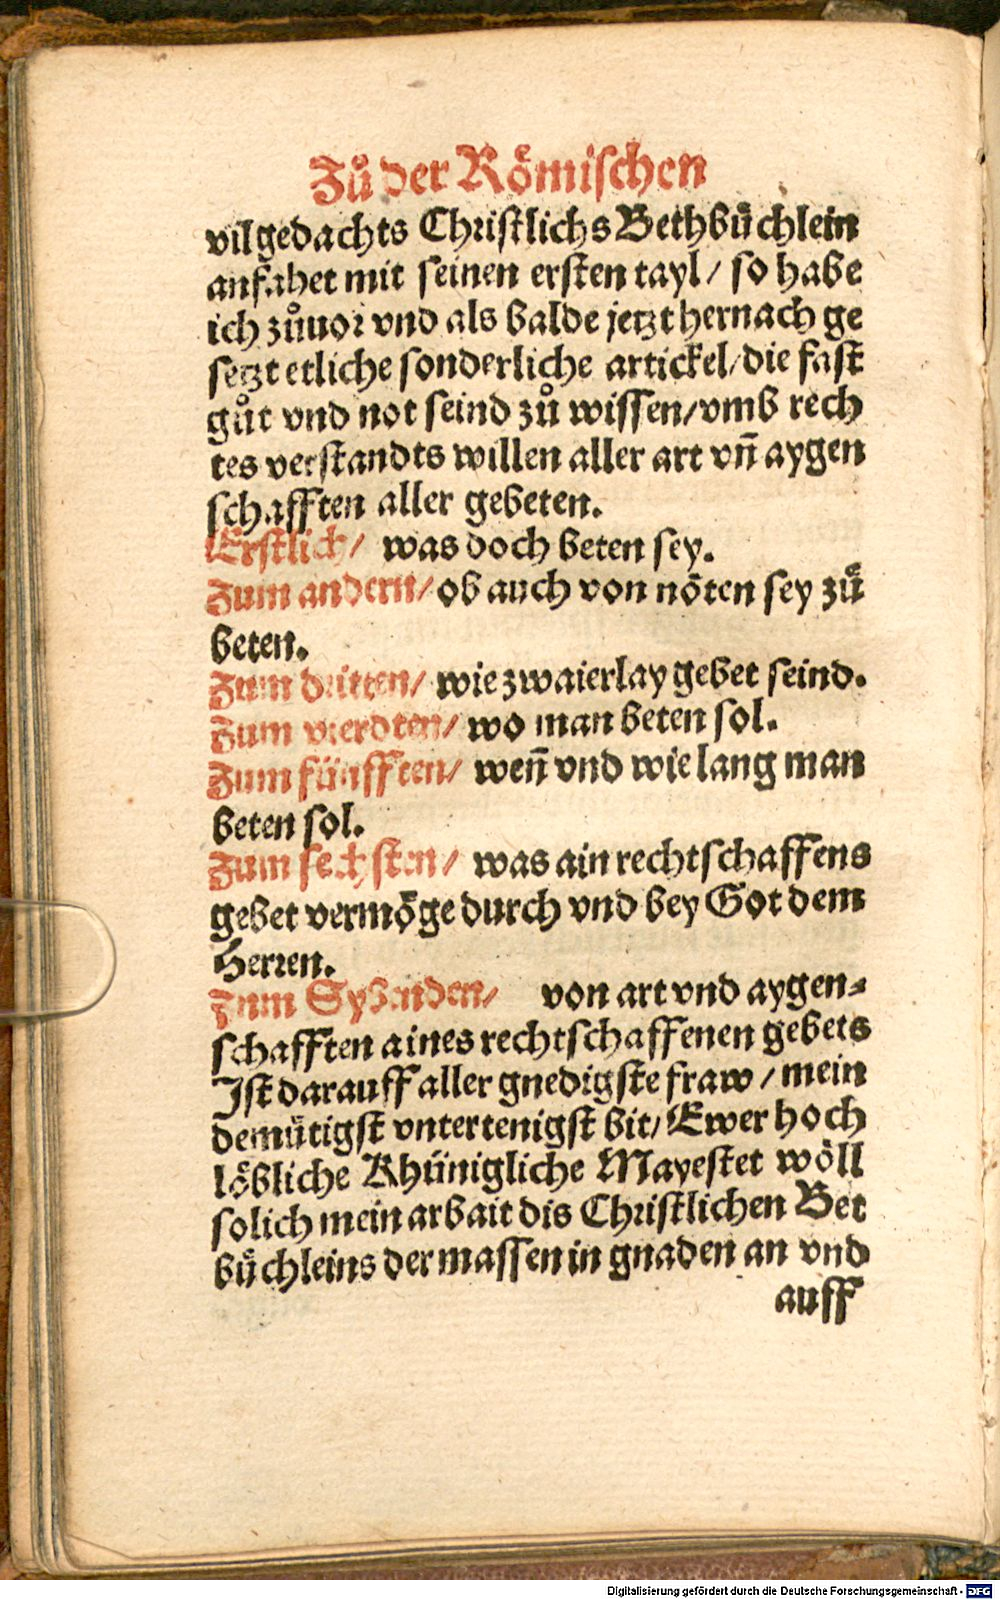 Zů der Römischen
vilgedachts Christlichs Bethbüchlein
anfahet mit seinen ersten tayl/ so habe
ich zůuor vnd als balde jetzt hernach ge
setzt etliche sonderliche artickel/die fast
gůt vnd not seind zů wissen/vmb rech
tes verstandts willen aller art vñ aygen
schafften aller gebeten.
Erstlich/ was doch beten sey.
Zum andern/ob auch von nöten sey zů
beten.
Zum dritten/ wie zwaierlay gebet seind.
Zum vierdten/ wo man beten sol.
Zum fünfften/ weñ vnd wie lang man
beten sol.
Zum sechsten/ was ain rechtschaffens
gebet vermöge durch vnd bey Got dem
Herren.
Zum Sybenden/ von art vnd aygen-
schafften aines rechtschaffenen gebets
Ist darauff aller gnedigste fraw/mein
demütigst vntertenigst bit/Ewer hoch
löbliche Khünigliche Mayestet wöll
solich mein arbait dis Christlichen Bet
büchleins dermassen in gnaden an vnd
auff
Digitalisierung gefördert durch die Deutsche Forschungsgemeinschaft - DFG